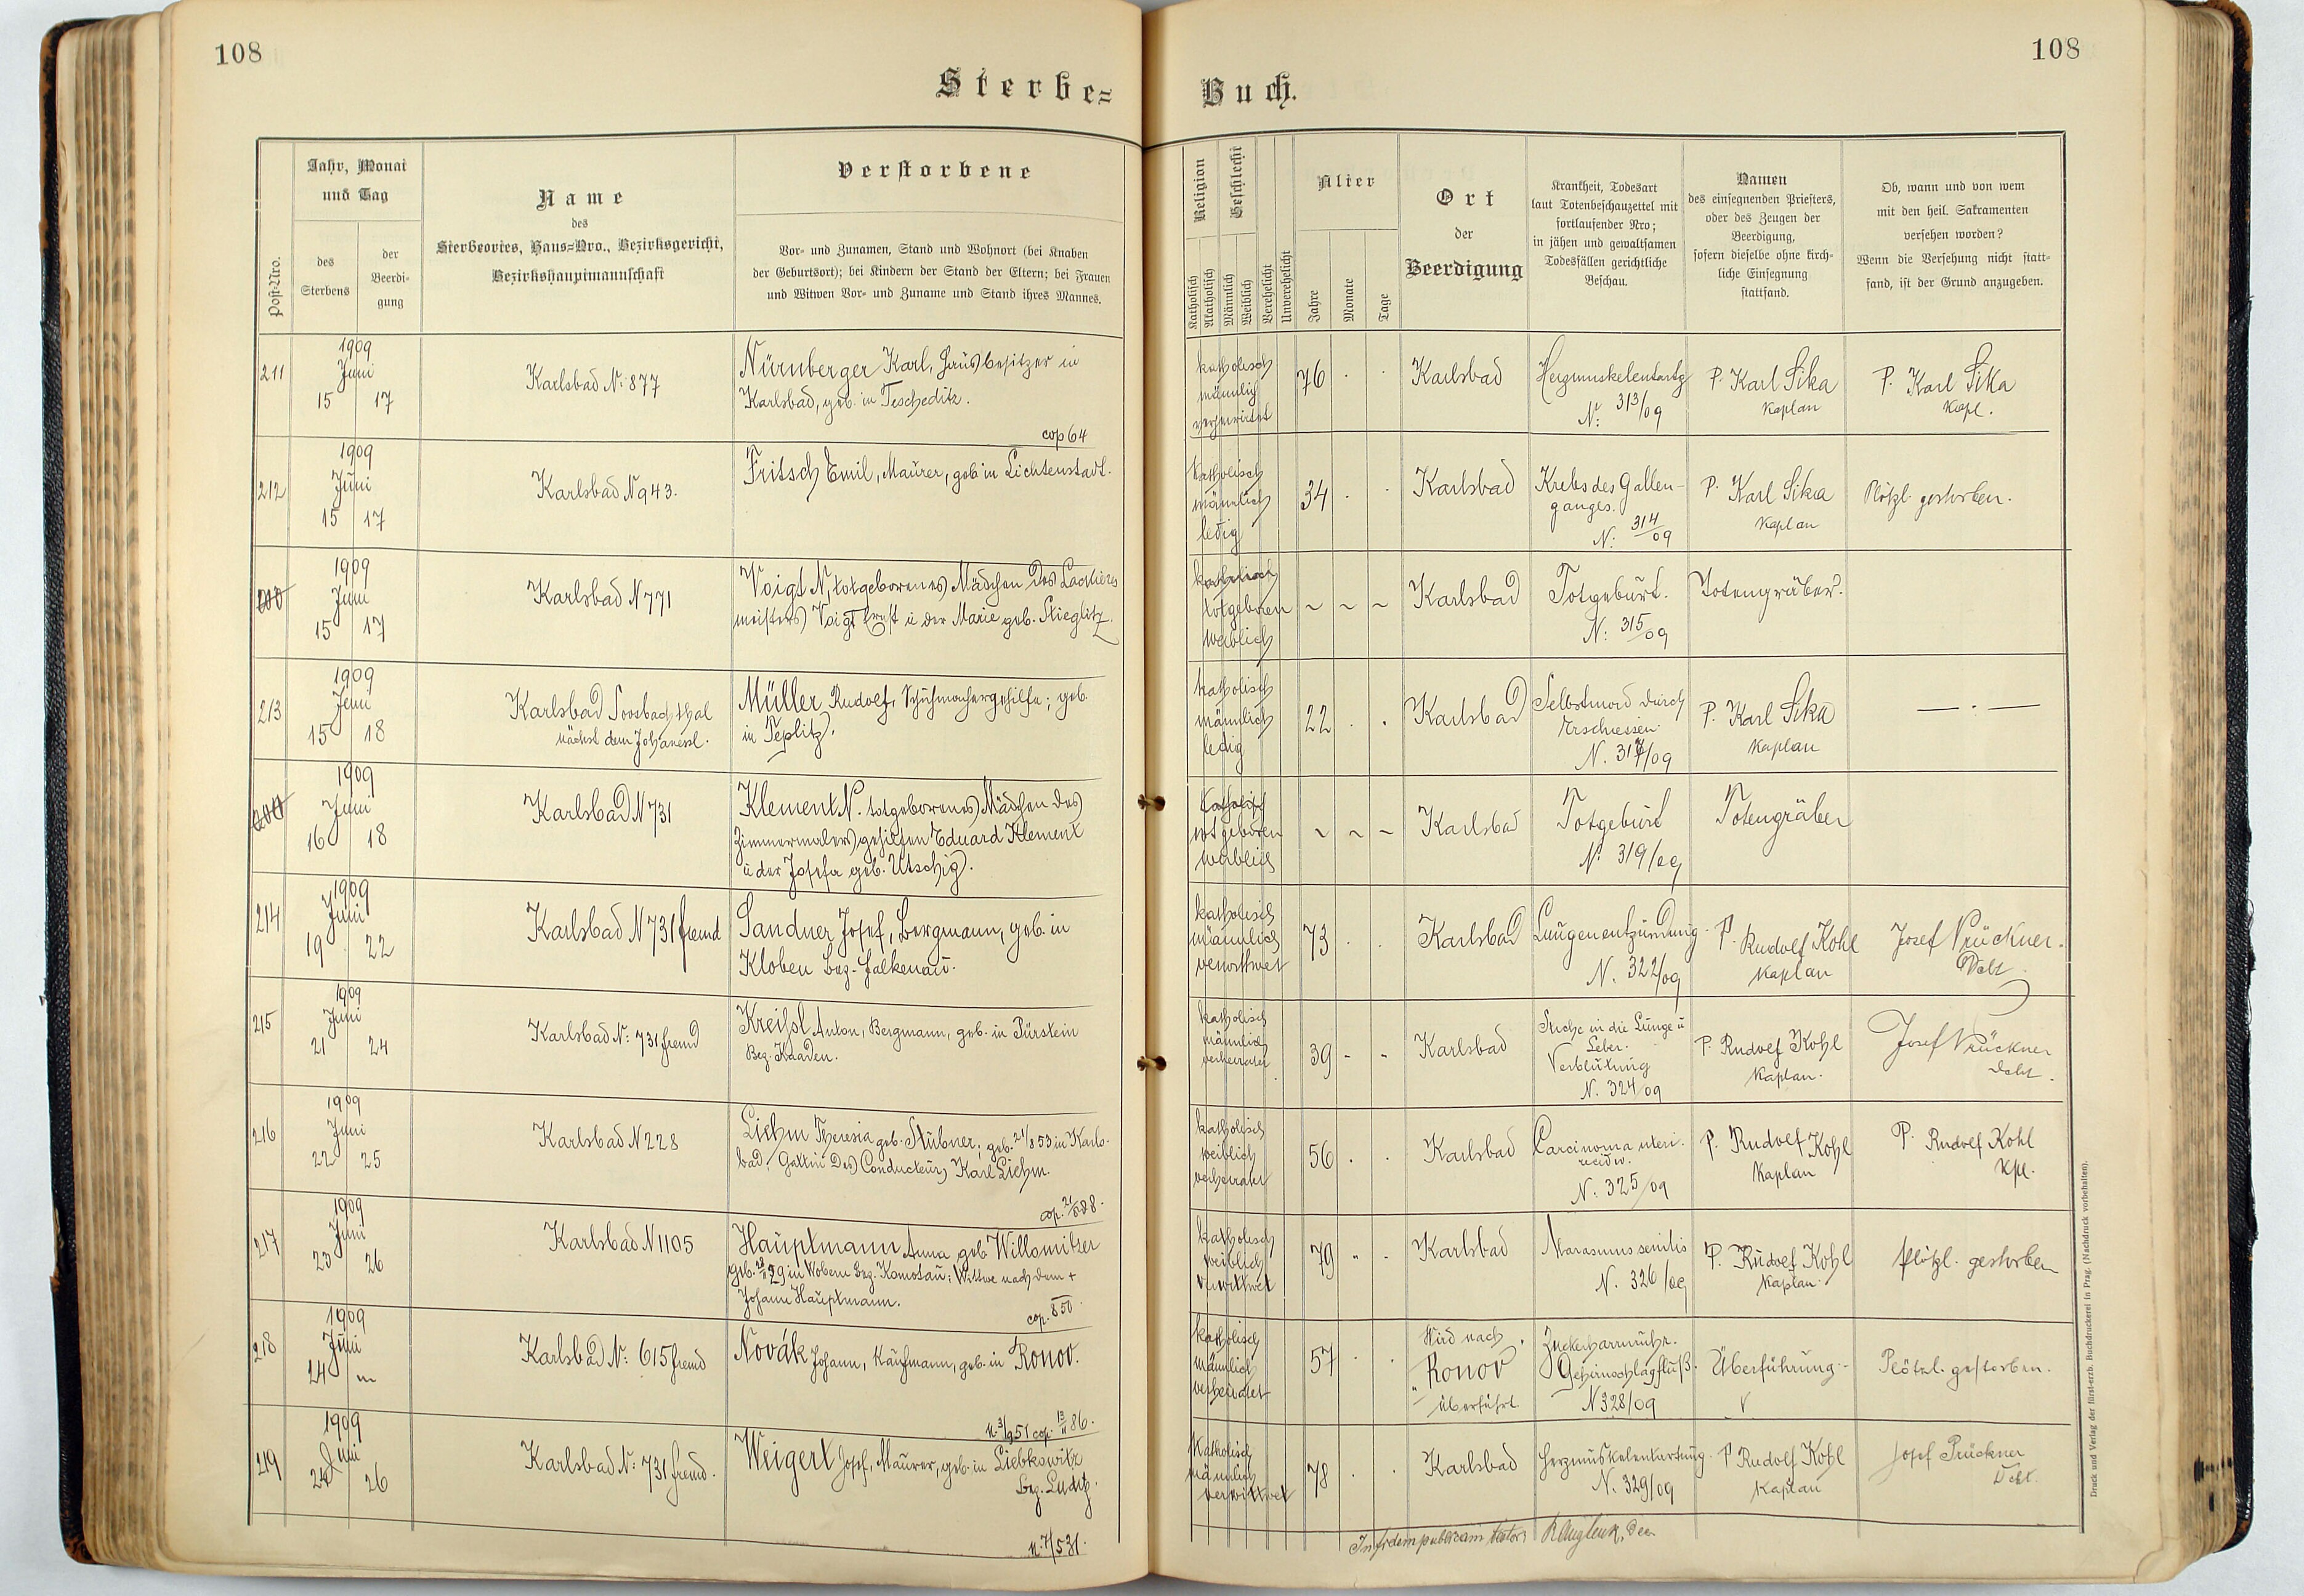 108
108
Sterbe=
Buch.
Post-Nro.
Jahr, Monat
und Tag
des
Sterbens
der
Beerdi-
gung
Name
des
Sterbeortes, Haus=Nro., Bezirksgericht,
Bezirkshauptmannschaft
Verstorbene
Vor- und Zunamen, Stand und Wohnort (bei Knaben
der Geburtsort); bei Kindern der Stand der Eltern; bei Frauen
und Witwen Vor- und Zuname und Stand ihres Mannes.
Religion
Geschlecht
Katholisch
Akatholisch
Männlich
Weiblich
Verehelicht
Unverehelicht
Alter
Jahre
Monate
Tage
Ort
der
Beerdigung
Krankheit, Todesart
laut Totenbeschauzettel mit
fortlaufender Nro;
in jähen und gewaltsamen
Todesfällen gerichtliche
Beschau.
Namen
des einsegnenden Priesters,
oder des Zeugen der
Beerdigung,
sofern dieselbe ohne kirch-
liche Einsegnung
stattfand.
Ob, wann und von wem
mit den heil. Sakramenten
versehen worden?
Wenn die Versehung nicht statt-
fand, ist der Grund anzugeben.
211
1909
Juni
15 17
Karlsbad N: 877
Nürnberger Karl, Hausbesitzer in
Karlsbad, geb. in Tescheditz.
cop 64
katholisch
männlich
verheiratet
76
Karlsbad
Herzmuskelentartg
N: 313/09
P. Karl Sika
Kaplan
P. Karl Sika
Kapl.
212
1909
Juni
15 17
Karlsbad N 943.
Fritsch Emil, Maurer, geb in Lichtenstadt.
katholisch
männlich
ledig
34
Karlsbad
Krebs des Gallen-
ganges.
N: 314/09
P. Karl Sika
Kaplan
Plötzl. gestorben.
1909
Juni
15 17
Karlsbad N 771
Voigt N, totgeborenes Mädchen des Lackierer
meisters Voigt Ernst u der Marie geb. Stieglitz.
katholisch
totgeboren
weiblich
~ ~ ~
Karlsbad
Totgeburt.
N: 315/09
Totengräber.
213
1909
Juni
15 18
Karlsbad Soosbachthal
nächst dem Johannesl.
Müller Rudolf, Schuhmachergehilfe; geb.
in Teplitz.
katholisch
männlich
ledig
22
Karlsbad
Selbstmord durch
Erschiessen
N. 317/09
P. Karl Sika
Kaplan
— . —
1909
Juni
16 18
Karlsbad N 731
Klement N. totgeborenes Mädchen des
Zimmermalersgehilfen Eduard Klement
u der Josefa geb. Utschig.
Katholisch
totgeboren
weiblich
~ ~ ~
Karlsbad
Totgeburt
N: 319/09
Totengräber
214
1909
Juni
19 22
Karlsbad N 731 fremd
Sandner Josef, Bergmann, geb. in
Kloben Bez. Falkenau.
katholisch
männlich
verwittwet
73
Karlsbad
Lungenentzündung.
N. 322/09
P. Rudolf Kohl
Kaplan
Josef Prückner.
Dekt.
215
1909
Juni
21 24
Karlsbad N: 731 fremd
Kreißl Anton, Bergmann, geb. in Pürstein
Bez. Kaaden.
katholisch
männlich
verheiratet
39
Karlsbad
Stiche in die Lunge u
Leber.
Verblutung
N. 324/09
P. Rudolf Kohl
Kaplan.
Josef Prückner
Dekt.
216
1909
Juni
22 25
Karlsbad N 228
Liehm Theresia geb. Stübner; geb. 21/8 53 in Karls-
bad, Gattin des Conducteurs Karl Liehm.
cop. 21/8 88.
katholisch
weiblich
verheiratet
56
Karlsbad
Carcinoma uteri.
recidiv.
N. 325/09
P. Rudolf Kohl
Kaplan
P. Rudolf Kohl
Kpl.
217
1909
Juni
23 26
Karlsbad N 1105
Hauptmann Anna geb Willomitzer
geb. 29 in Wobern Bez. Komotau; Witwe nach dem +
Johann Hauptmann.
cop. 850.
katholisch
weiblich
verwittwet
79
Karlsbad
Marasmus senilis
N. 326/09
P. Rudolf Kohl
Kaplan.
plötzl. gestorben
218
1909
Juni
24
Karlsbad N: 615 fremd
Novák Johann, Kaufmann, geb. in Ronov.
n. 3/9 51 cop. 13/11 86.
katholisch
männlich
verheiratet
57
Wird nach
Ronov
überführt.
Zuckerharnruhr.
Gehirnschlagfluß.
N 328/09
Überführung.
Plötzl. gestorben.
219
1909
Juni
24 26
Karlsbad N: 731 fremd.
Weigert Josef, Maurer, geb. in Liebkowitz
Bez. Luditz.
n. 7/531.
Katholisch
männlich
verwittwet
78
Karlsbad
Herzmuskelentartung.
N. 329/09
P Rudolf Kohl
Kaplan
Josef Prückner
Dekt.
In fidem publicam testor:
Druck und Verlag der fürst-erzb. Buchdruckerei in Prag. (Nachdruck vorbehalten).